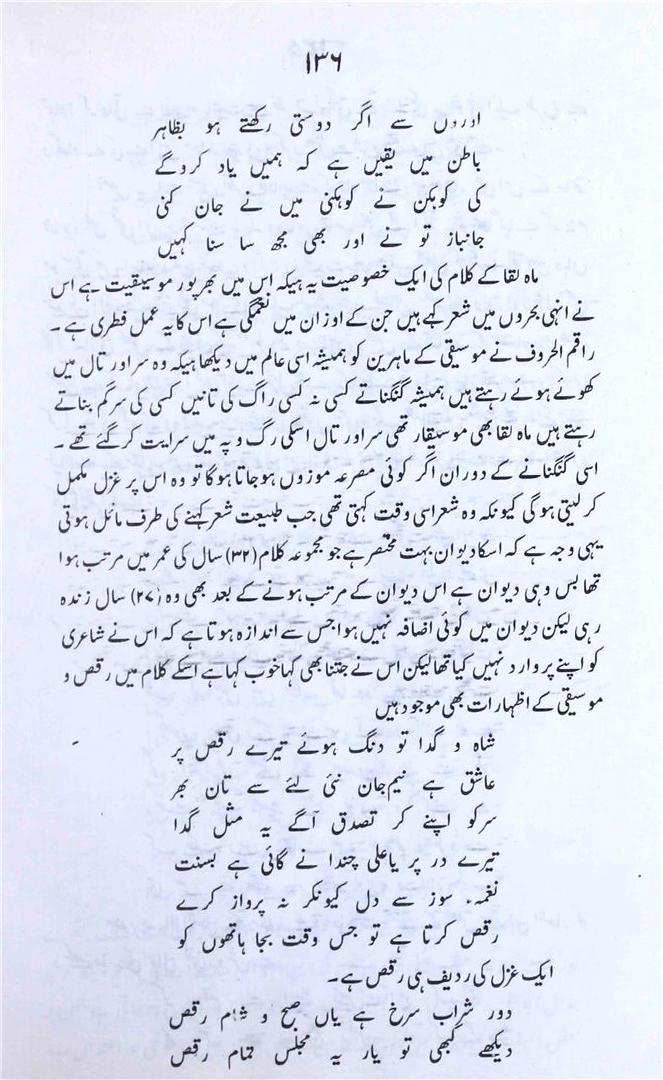 ۱۳۶
اوروں سے اگر دوستی رکھتے ہو بظاہر
باطن میں یقیں ہے کہ ہمیں یاد کروگے
کی کوہکن نے کوہکنی میں نے جان کنی
جانباز تو نے اور بھی مجھ سا سنا کہیں
ماہ لقا کے کلام کی ایک خصوصیت یہ ہیکہ اس میں بھرپور موسیقیت ہے اس
نے انہی بحروں میں شعر کہے ہیں جن کے اوزان میں نغمگی ہے اس کا یہ عمل فطری ہے ۔
راقم الحروف نے موسیقی کے ماہرین کو ہمیشہ اسی عالم میں دیکھا ہیکہ وہ سر اور تال میں
کھوئے ہوئے رہتے ہیں ہمیشہ گنگناتے کسی نہ کسی راگ کی تانیں کسی کی سرگم بناتے
رہتے ہیں ماہ لقا بھی موسیقار تھی سر اور تال اسکی رگ و پہ میں سرایت کرگئے تھے ۔
اسی گنگنانے کے دوران اگر کوئی مصرعہ موزوں ہوجاتا ہوگا تو وہ اس پر غزل مکمل
کر لیتی ہوگی کیونکہ وہ شعر اسی وقت کہتی تھی جب طبیعت شعر کہنے کی طرف مائل ہوتی
یہی وجہ ہے کہ اسکا دیوان بہت مختصر ہے جو مجموعہ کلام (۳۲) سال کی عمر میں مرتب ہوا
تھا بس وہی دیوان ہے اس دیوان کے مرتب ہونے کے بعد بھی وہ (۲۷) سال زندہ
رہی لیکن دیوان میں کوئی اضافہ نہیں ہوا جس سے اندازہ ہوتا ہے کہ اس نے شاعری
کو اپنے پر وارد نہیں کیا تھا لیکن اس نے جتنا بھی کہا خوب کہا ہے اسکے کلام میں رقص و
موسیقی کے اظہارات بھی موجود ہیں
شاہ و گدا تو دنگ ہوئے تیرے رقص پر
عاشق ہے نیم جان نئی لئے سے تان بھر
سرکو اپنے کر تصدق آگے یہ مثل گدا
تیرے در پر یا علی چندا نے گائی ہے بسنت
نغمہء سوز سے دل کیونکر نہ پرواز کرے
رقص کرتا ہے تو جس وقت بجا ہاتھوں کو
ایک غزل کی ردیف ہی رقص ہے۔
دور شراب سرخ ہے یاں صبح و شام رقص
دیکھے کبھی تو یار یہ مجلس تمام رقص